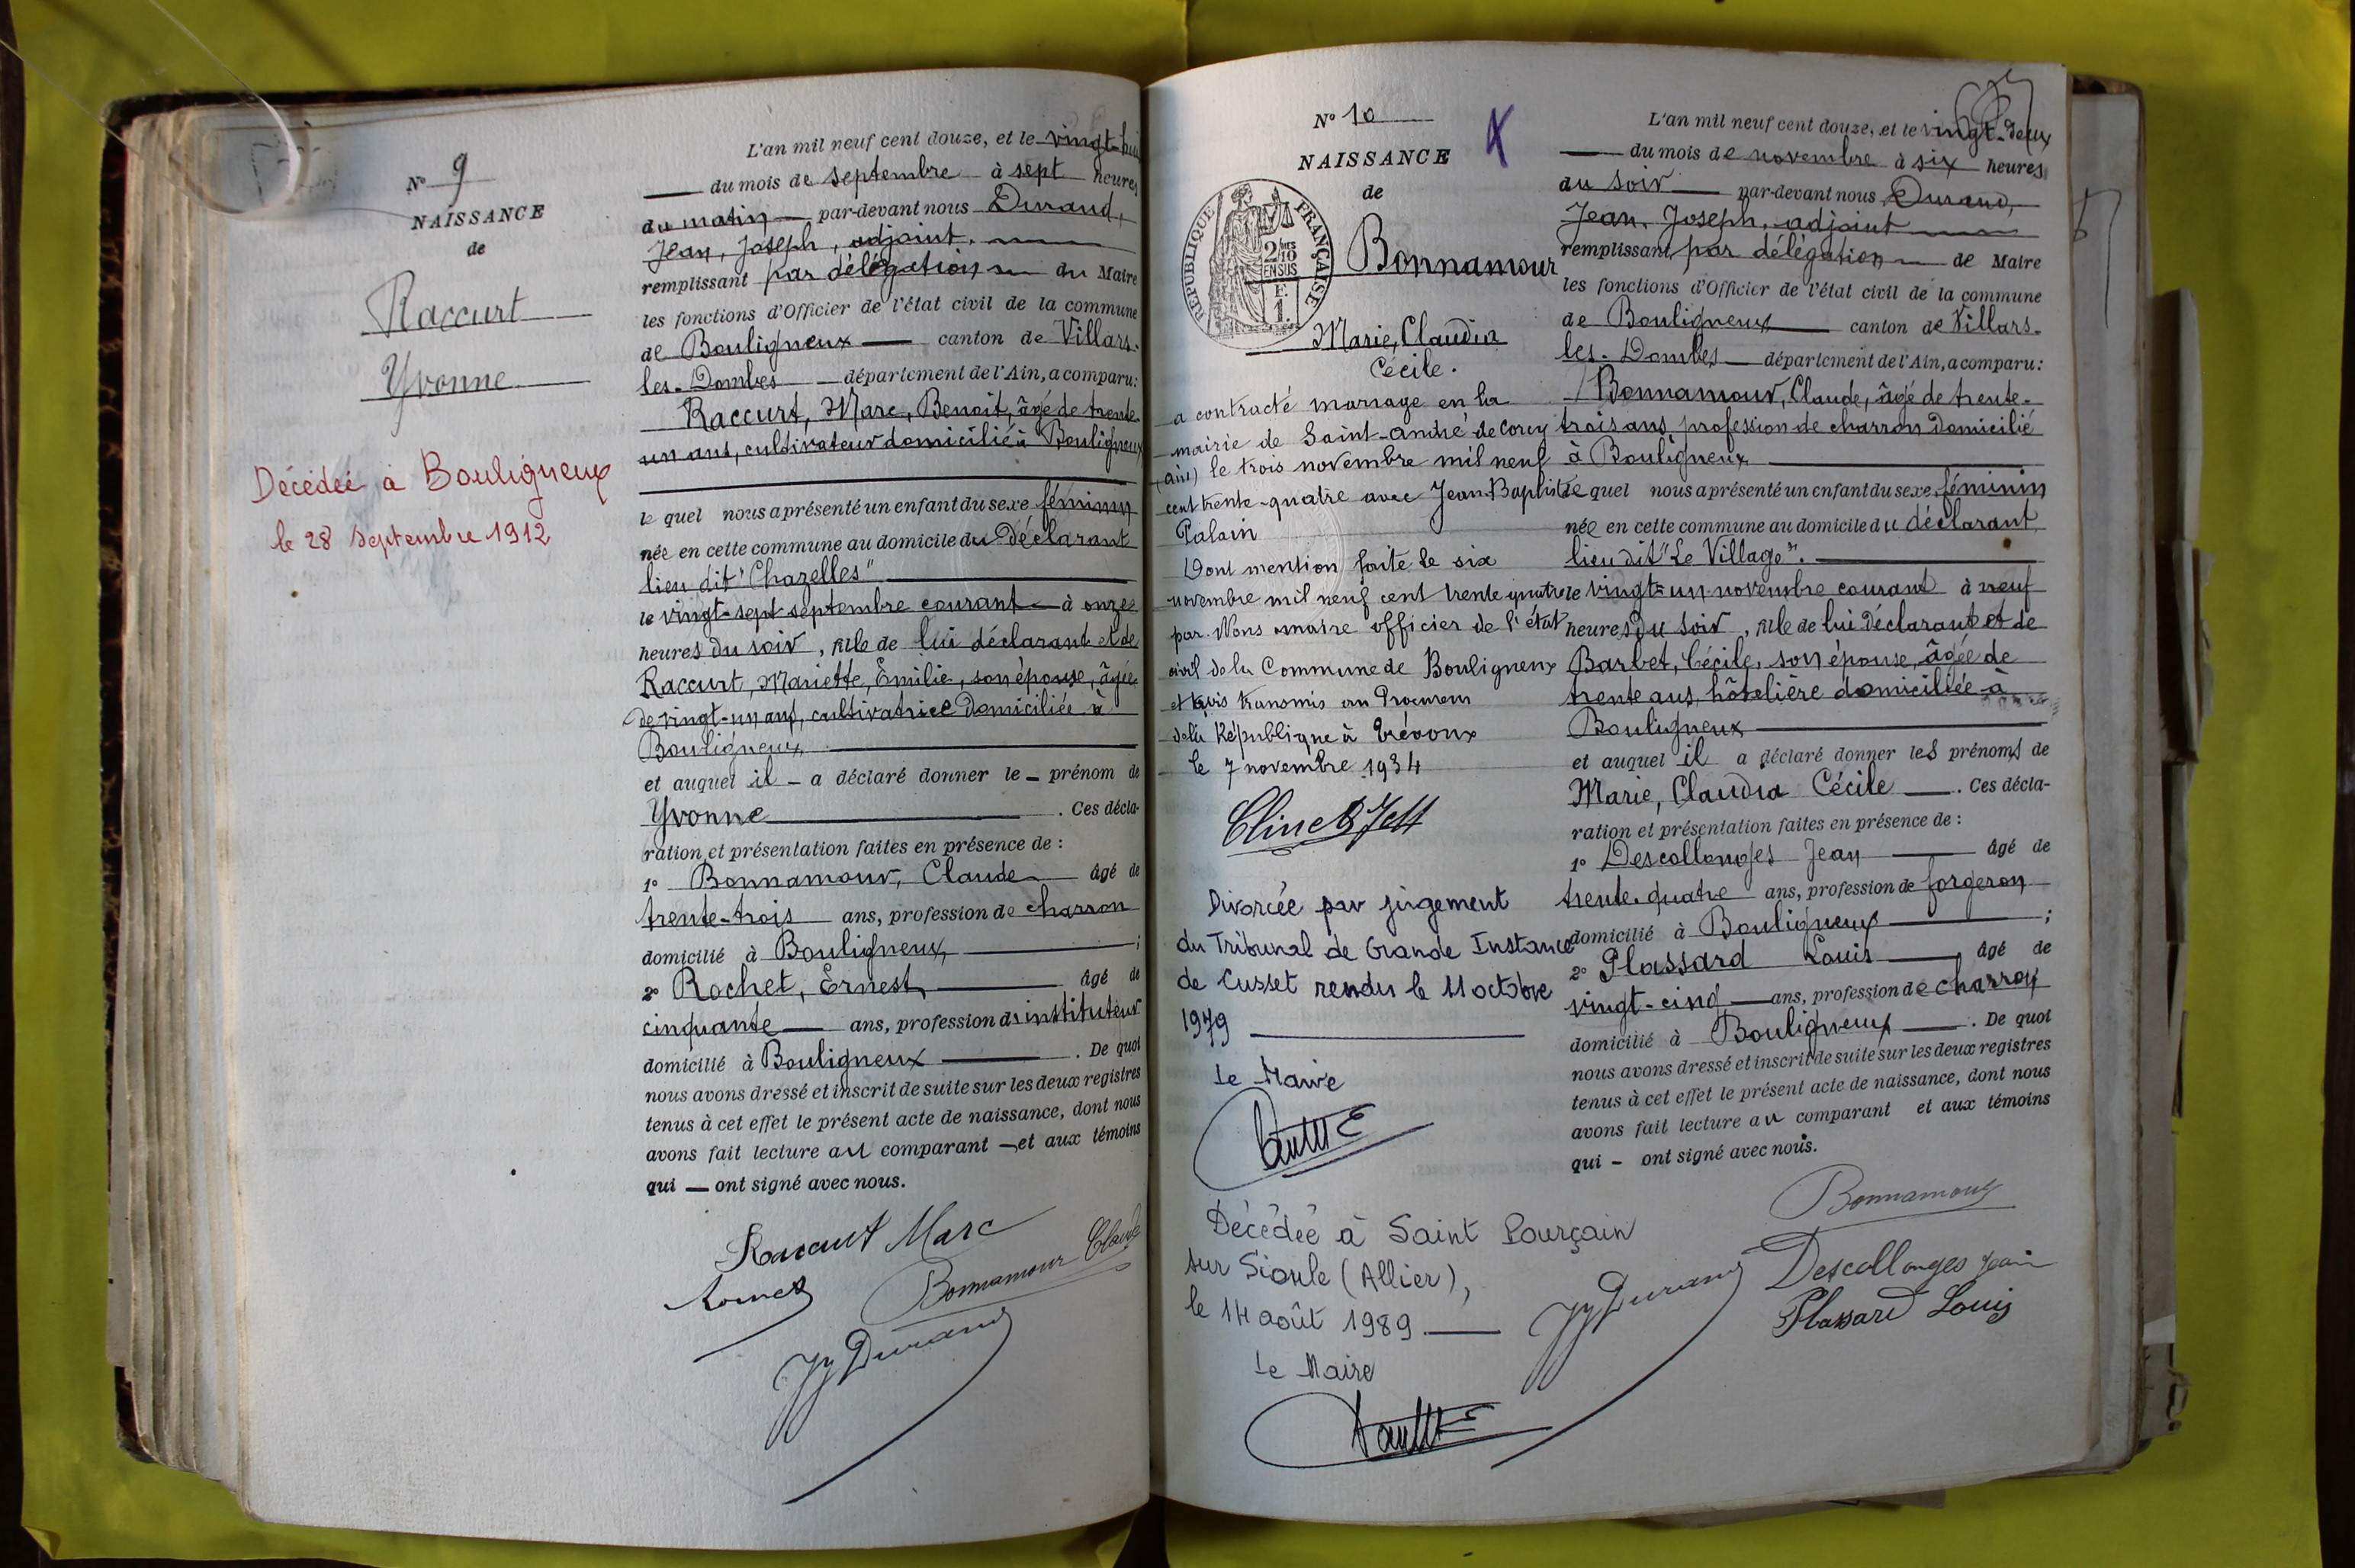 N° 9
NAISSANCE
de
Raccurt
Yvonne
Décédée à Bouligneux
le 28 Septembre 1912
L'an mil neuf cent douze, et le vingt-huit
du mois de septembre à sept heures
du matin par-devant nous Durand,
Jean, Joseph, adjoint.
remplissant par délégation du Maire
les fonctions d'Officier de l'état civil de la commune
de Bouligneux canton de Villars-
les-Dombes département de l'Ain, a comparu:
Raccurt, Marc, Benoit, âgé de trente-
un ans, cultivateur domicilié à Bouligneux
le quel nous a présenté un enfant du sexe féminin
née en cette commune au domicile du déclarant
lieu dit "Chazelles"
le vingt-sept septembre courant à onze
heures du soir, fille de lui déclarant et de
Raccurt, Mariette, Émilie, son épouse, âgée
de vingt-un ans, cultivatrice domiciliée à
Bouligneux
et auquel il - a déclaré donner le - prénom de
Yvonne . Ces décla-
ration et présentation faites en présence de :
1° Bonnamour, Claude âgé de
trente-trois ans, profession de charron
domicilié à Bouligneux ;
2° Rochet, Ernest, âgé de
cinquante ans, profession d'instituteur
domicilié à Bouligneux . De quoi
nous avons dressé et inscrit de suite sur les deux registres
tenus à cet effet le présent acte de naissance, dont nous
avons fait lecture au comparant - et aux témoins
qui - ont signé avec nous.
Raccurt Marc
Bonnamour Claude
JJ Durand
N° 10
NAISSANCE
de
REPUBLIQUE FRANÇAISE
2/10
EN SUS
Bonnamour
Marie, Claudia
Cécile.
a contracté mariage en la
mairie de Saint-André de Corcy
(ain) le trois novembre mil neuf
cent trente-quatre avec Jean-Baptiste
Palain
Dont mention faite le six
novembre mil neuf cent trente quatre
par Nous maire officier de l'état
civil de la Commune de Bouligneux
et avis transmis au Procureur
de la République à Trévoux
le 7 novembre 1934
Divorcée par jugement
du Tribunal de Grande Instance
de Cusset rendu le 11 octobre
1979
Le Maire
Décédée à Saint Pourçain
sur Sioule (Allier),
le 14 août 1989
Le Maire
L'an mil neuf cent douze, et le vingt-deux
du mois de novembre à six heures
du soir par-devant nous Durand,
Jean, Joseph, adjoint
remplissant par délégation de Maire
les fonctions d'Officier de l'état civil de la commune
de Bouligneux canton de Villars-
les-Dombes département de l'Ain, a comparu:
Bonnamour, Claude, âgé de trente-
trois ans, profession de charron domicilié
à Bouligneux
le quel nous a présenté un enfant du sexe féminin
née en cette commune au domicile du déclarant
lieu dit "Le Village".
le vingt-un novembre courant à neuf
heures du soir, fille de lui déclarant et de
Barbet, Cécile, son épouse, âgée de
trente ans, hôtelière domiciliée à
Bouligneux
et auquel il a déclaré donner les prénoms de
Marie, Claudia Cécile . Ces décla-
ration et présentation faites en présence de :
1° Descollonges Jean âgé de
trente-quatre ans, profession de forgeron
domicilié à Bouligneux ;
2° Plassard Louis âgé de
vingt-cinq ans, profession de charron
domicilié à Bouligneux . De quoi
nous avons dressé et inscrit de suite sur les deux registres
tenus à cet effet le présent acte de naissance, dont nous
avons fait lecture au comparant et aux témoins
qui - ont signé avec nous.
Bonnamour
Descollonges Jean
JJ Durand
Plassard Louis